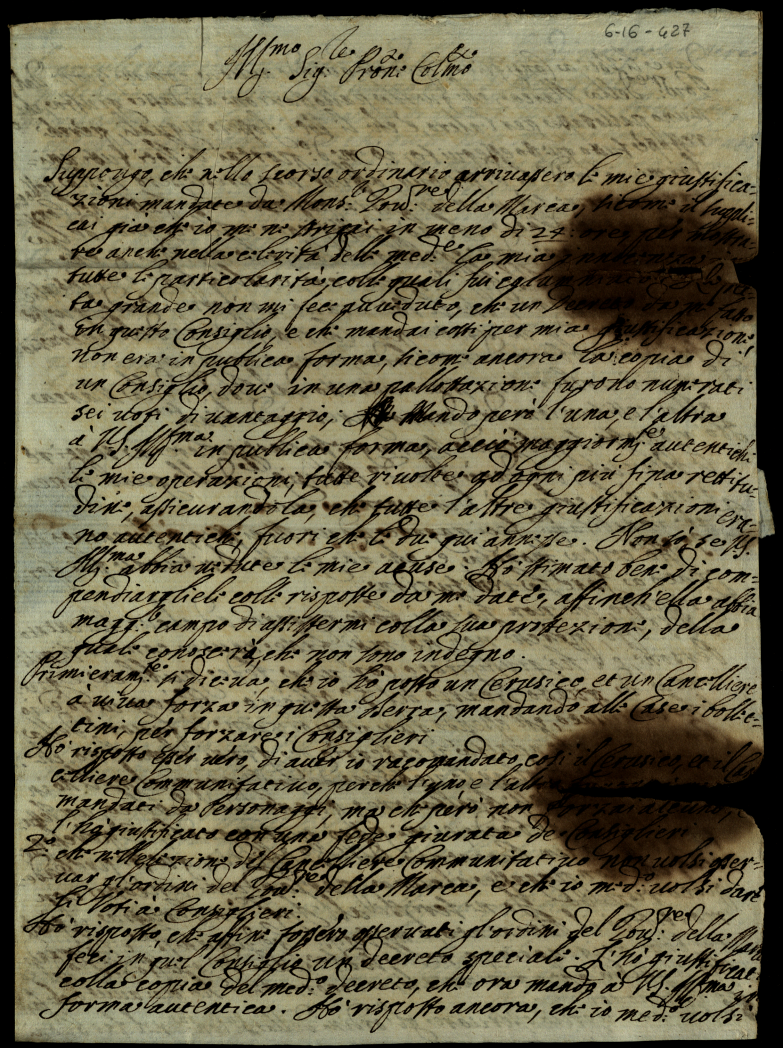 6-16-427
Ill.mo Sig.re Pron.e Col.mo
Suppongo, che nello scorso ordinario arrivassero le mie giustifica=
zioni mandate da Mons.r Gov.re della Marca, sicome il suppli=
cai già che io me ne strigai in meno di 24. ore, per mostra=
re anche nella celerità delle med.e la mia innocenza
tutte le particolarità, colle quali fui
ta grande non mi fece avveduto, che un Decreto da me fatto
in questo Consiglio, e che mandai costì per mia giustificazione
non era in publica forma, sicome ancora la copia di
un Consiglio, dove in una pallottazione furono numerati
sei voti di vantaggio; Mando però l'una, e l'altra
à V.S. Ill.ma in publica forma, acciò maggiorm.te autentichi
le mie operazioni, tutte rivolte ad ogni più fina rettitu=
dine, assicurandola, che tutte l'altre giustificazioni era=
no autentiche, fuori che le due qui annesse. Non sò, se V.S.
Ill.ma abbia vedute le mie accuse. Hò stimato bene di com=
pendiargliele colle risposte da me date, affinch'ella abbia
magg.r campo d'assistermi colla sua protezione, della
quale conoscerà, che non sono indegno.
Primieram.te si diceva, che io hò posto un Cerusico, et un Cancelliere
à viva forza in questa Terza, mandando alle Case i bollet=
tini, per forzare i Consiglieri
Hò risposto esser vero, di aver io racomandato, così il Cerusico, et il Can
celliere Communitativo, perche l'uno e l'altro
mandati da Personaggi, ma che però non forzai alcuno, e
l'hò giustificato con una fede giurata de Consiglieri
2.o che nell'elezione del Cancelliere Communitativo non volsi osser=
var gl'ordini del Gov.re della Marca, e che io med.o volsi dare
li voti à Consiglieri
Hò risposto, che affine fossero osservati gl'ordini del Gov.re della Marca
feci in quel Consiglio un decreto speciale. L'hò giustificat
colla copia del med.o decreto, che ora mando à V.S. Ill.ma in
forma autentica. Hò risposto ancora, che io med.o volsi